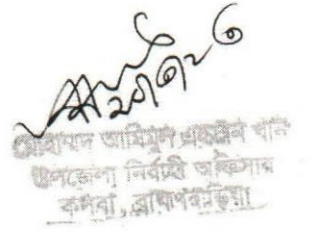 মোহাম্মদ আমিমুল এহসান খান
উপজেলা নির্বাহী অফিসার
কসবা, ব্রাহ্মণবাড়িয়া